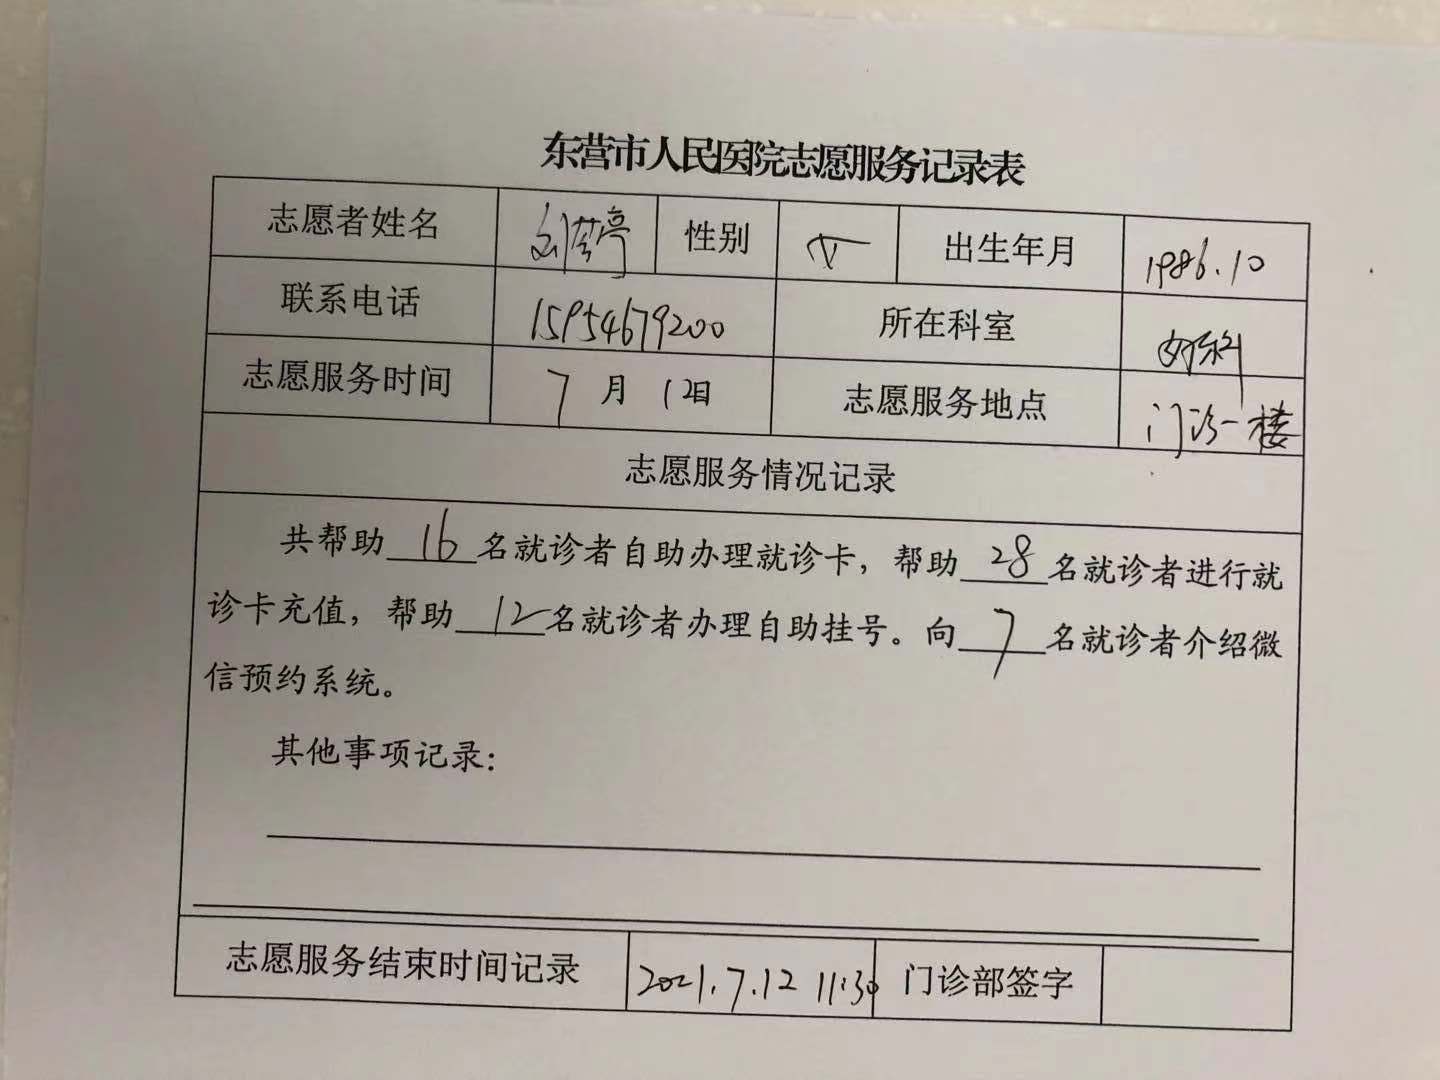 东营市人民医院志愿服务记录表
志愿者姓名 刘苓亭 性别 女 出生年月 1986.10
联系电话 15954679200 所在科室 妇科
志愿服务时间 7月12日 志愿服务地点 门诊一楼
志愿服务情况记录
共帮助16名就诊者自助办理就诊卡，帮助28名就诊者进行就
诊卡充值，帮助12名就诊者办理自助挂号。向7名就诊者介绍微
信预约系统。
其他事项记录：
志愿服务结束时间记录 2021.7.12 11:30 门诊部签字